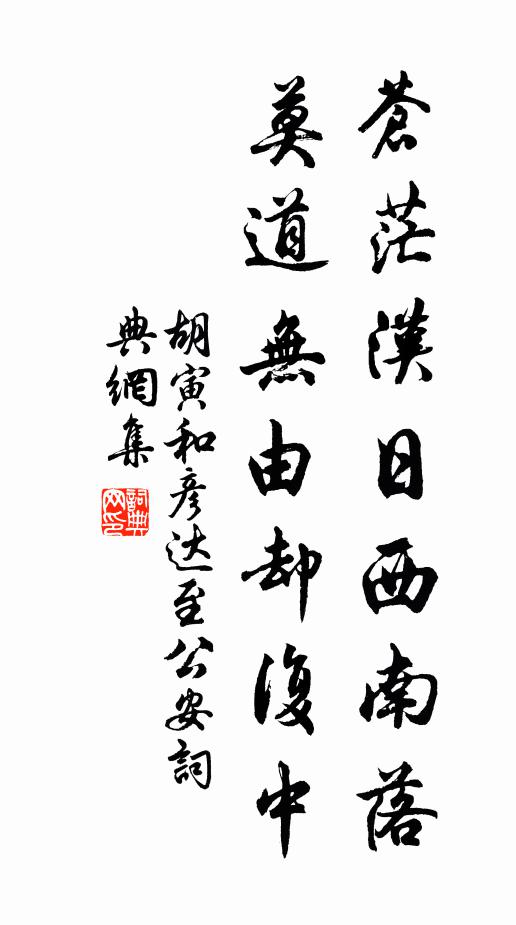 蒼茫漢日西南落
莫道無由却復中
胡寅和彦达至公安詞
典網集
詞典
网印